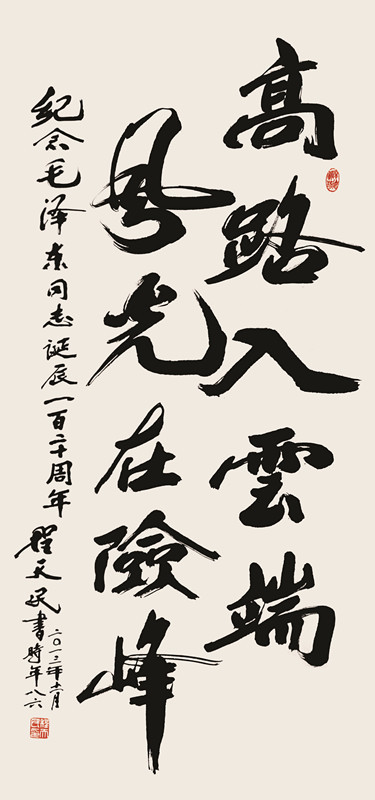 高路入雲端
風光在險峰
紀念毛泽东同志诞辰一百二十周年
程天民書
二〇一三年十二月
時年八六